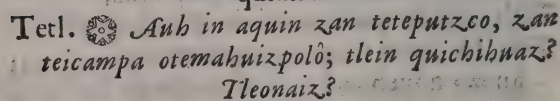 Tetl. Auh in aquin zan teteputzco, zan
teicampa otemahuizpolô; tlein quichihuaz?
Tleonaiz?